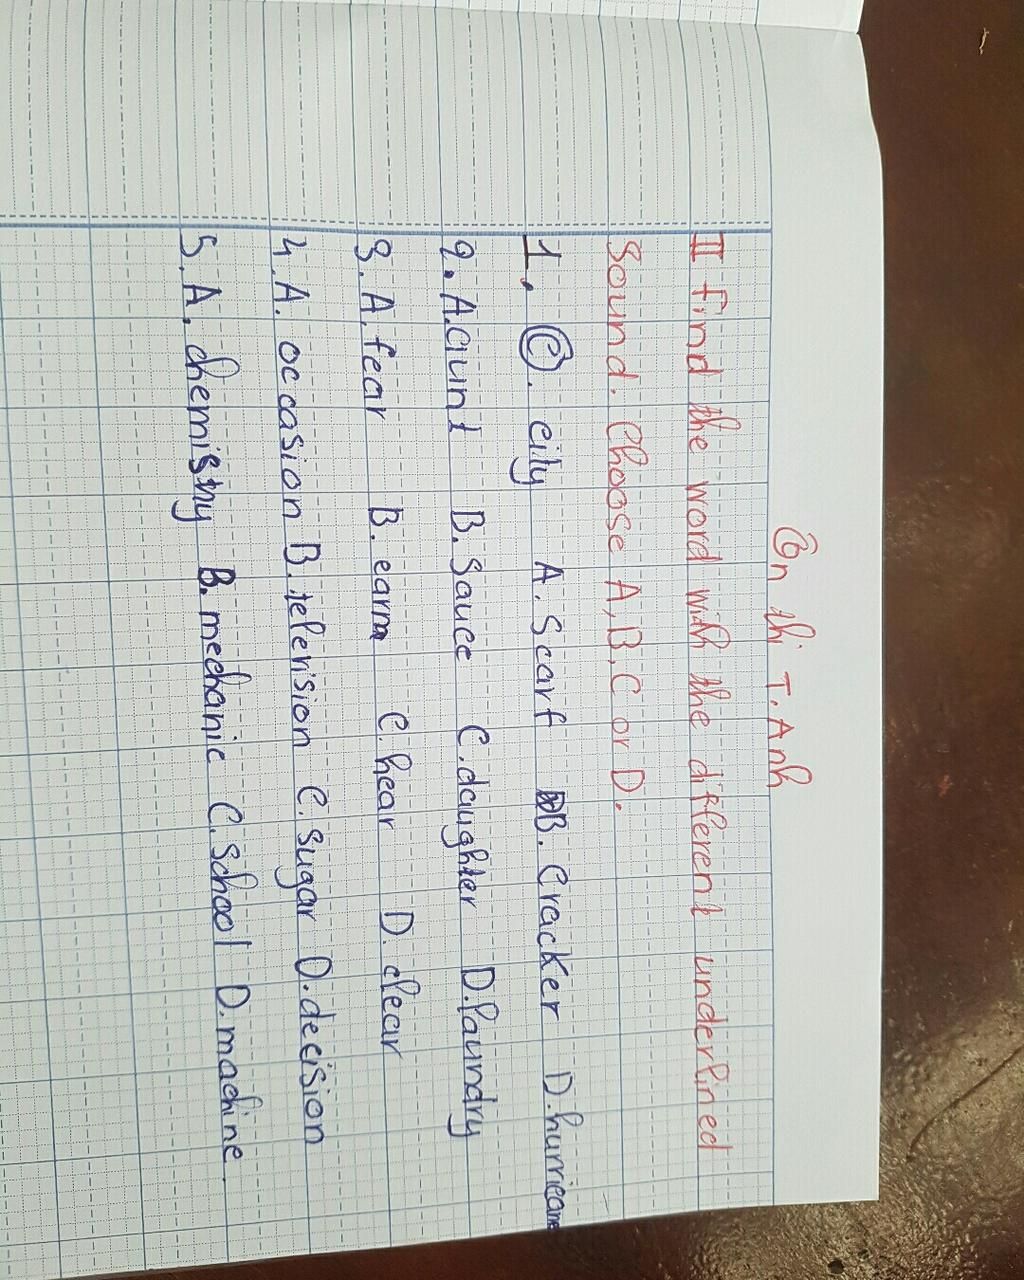 Ôn thi T.Anh
II find the word with the different underlined
Sound. Choose A, B, C or D.
1. C. city A. Scarf B. Cracker D. hurricane
2. A. aunt B. Sauce C. daughter D. laundry
3. A. fear B. earn C hear D. clear
4. A. occasion B. television C. sugar D. decision
5. A. chemistry B. mechanic C. school D. machine.